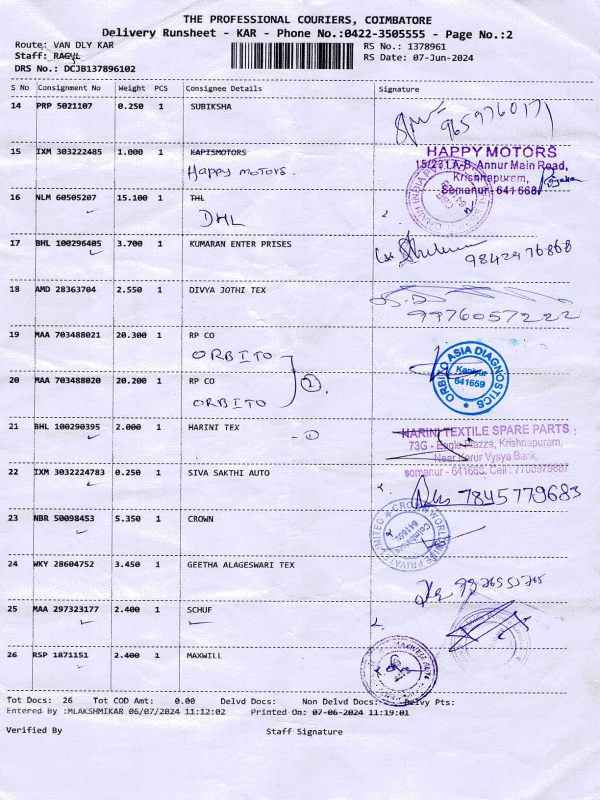 THE PROFESSIONAL COURIERS, COIMBATORE
Delivery Runsheet - KAR - Phone No.:0422-3505555 - Page No.:2
Route: VAN DLY KAR
RS No.: 1378961
Staff: RAGUL
RS Date: 07-Jun-2024
DRS No.: DCJB137896102
S No Consignment No Weight PCS Consignee Details Signature
14 PRP 5021107 0.250 1 SUBIKSHA
9659760171
15 IXM 303222485 1.000 1 KAPISMOTORS
Happy motors.
HAPPY MOTORS
15/231A-B, Annur Main Road,
Krishnapuram,
Somanur - 641 668.
16 NLM 60505207 15.100 1 THL
DHL
17 BHL 100296405 3.700 1 KUMARAN ENTER PRISES
9842976868
18 AMD 28363704 2.550 1 DIVYA JOTHI TEX
9976057222
19 MAA 703488021 20.300 1 RP CO
ORBITO
2
ORBITO ASIA DIAGNOSTICS
Kaniyur
641659
20 MAA 703488020 20.200 1 RP CO
ORBITO
21 BHL 100290395 2.000 1 HARINI TEX
- 1
HARINI TEXTILE SPARE PARTS
73G - Eagle Plazza, Krishnapuram,
Near Karur Vysya Bank,
somanur - 641668. Cell : 7703979887
22 IXM 3032224783 0.250 1 SIVA SAKTHI AUTO
7845779683
23 NBR 50098453 5.350 1 CROWN
24 WKY 28604752 3.450 1 GEETHA ALAGESWARI TEX
25 MAA 297323177 2.400 1 SCHUF
26 RSP 1871151 2.400 1 MAXWILL
Tot Docs: 26 Tot COD Amt: 0.00 Delvd Docs: Non Delvd Docs: Delvy Pts:
Entered By :MLAKSHMIKAR 06/07/2024 11:12:02 Printed On: 07-06-2024 11:19:01
Verified By Staff Signature